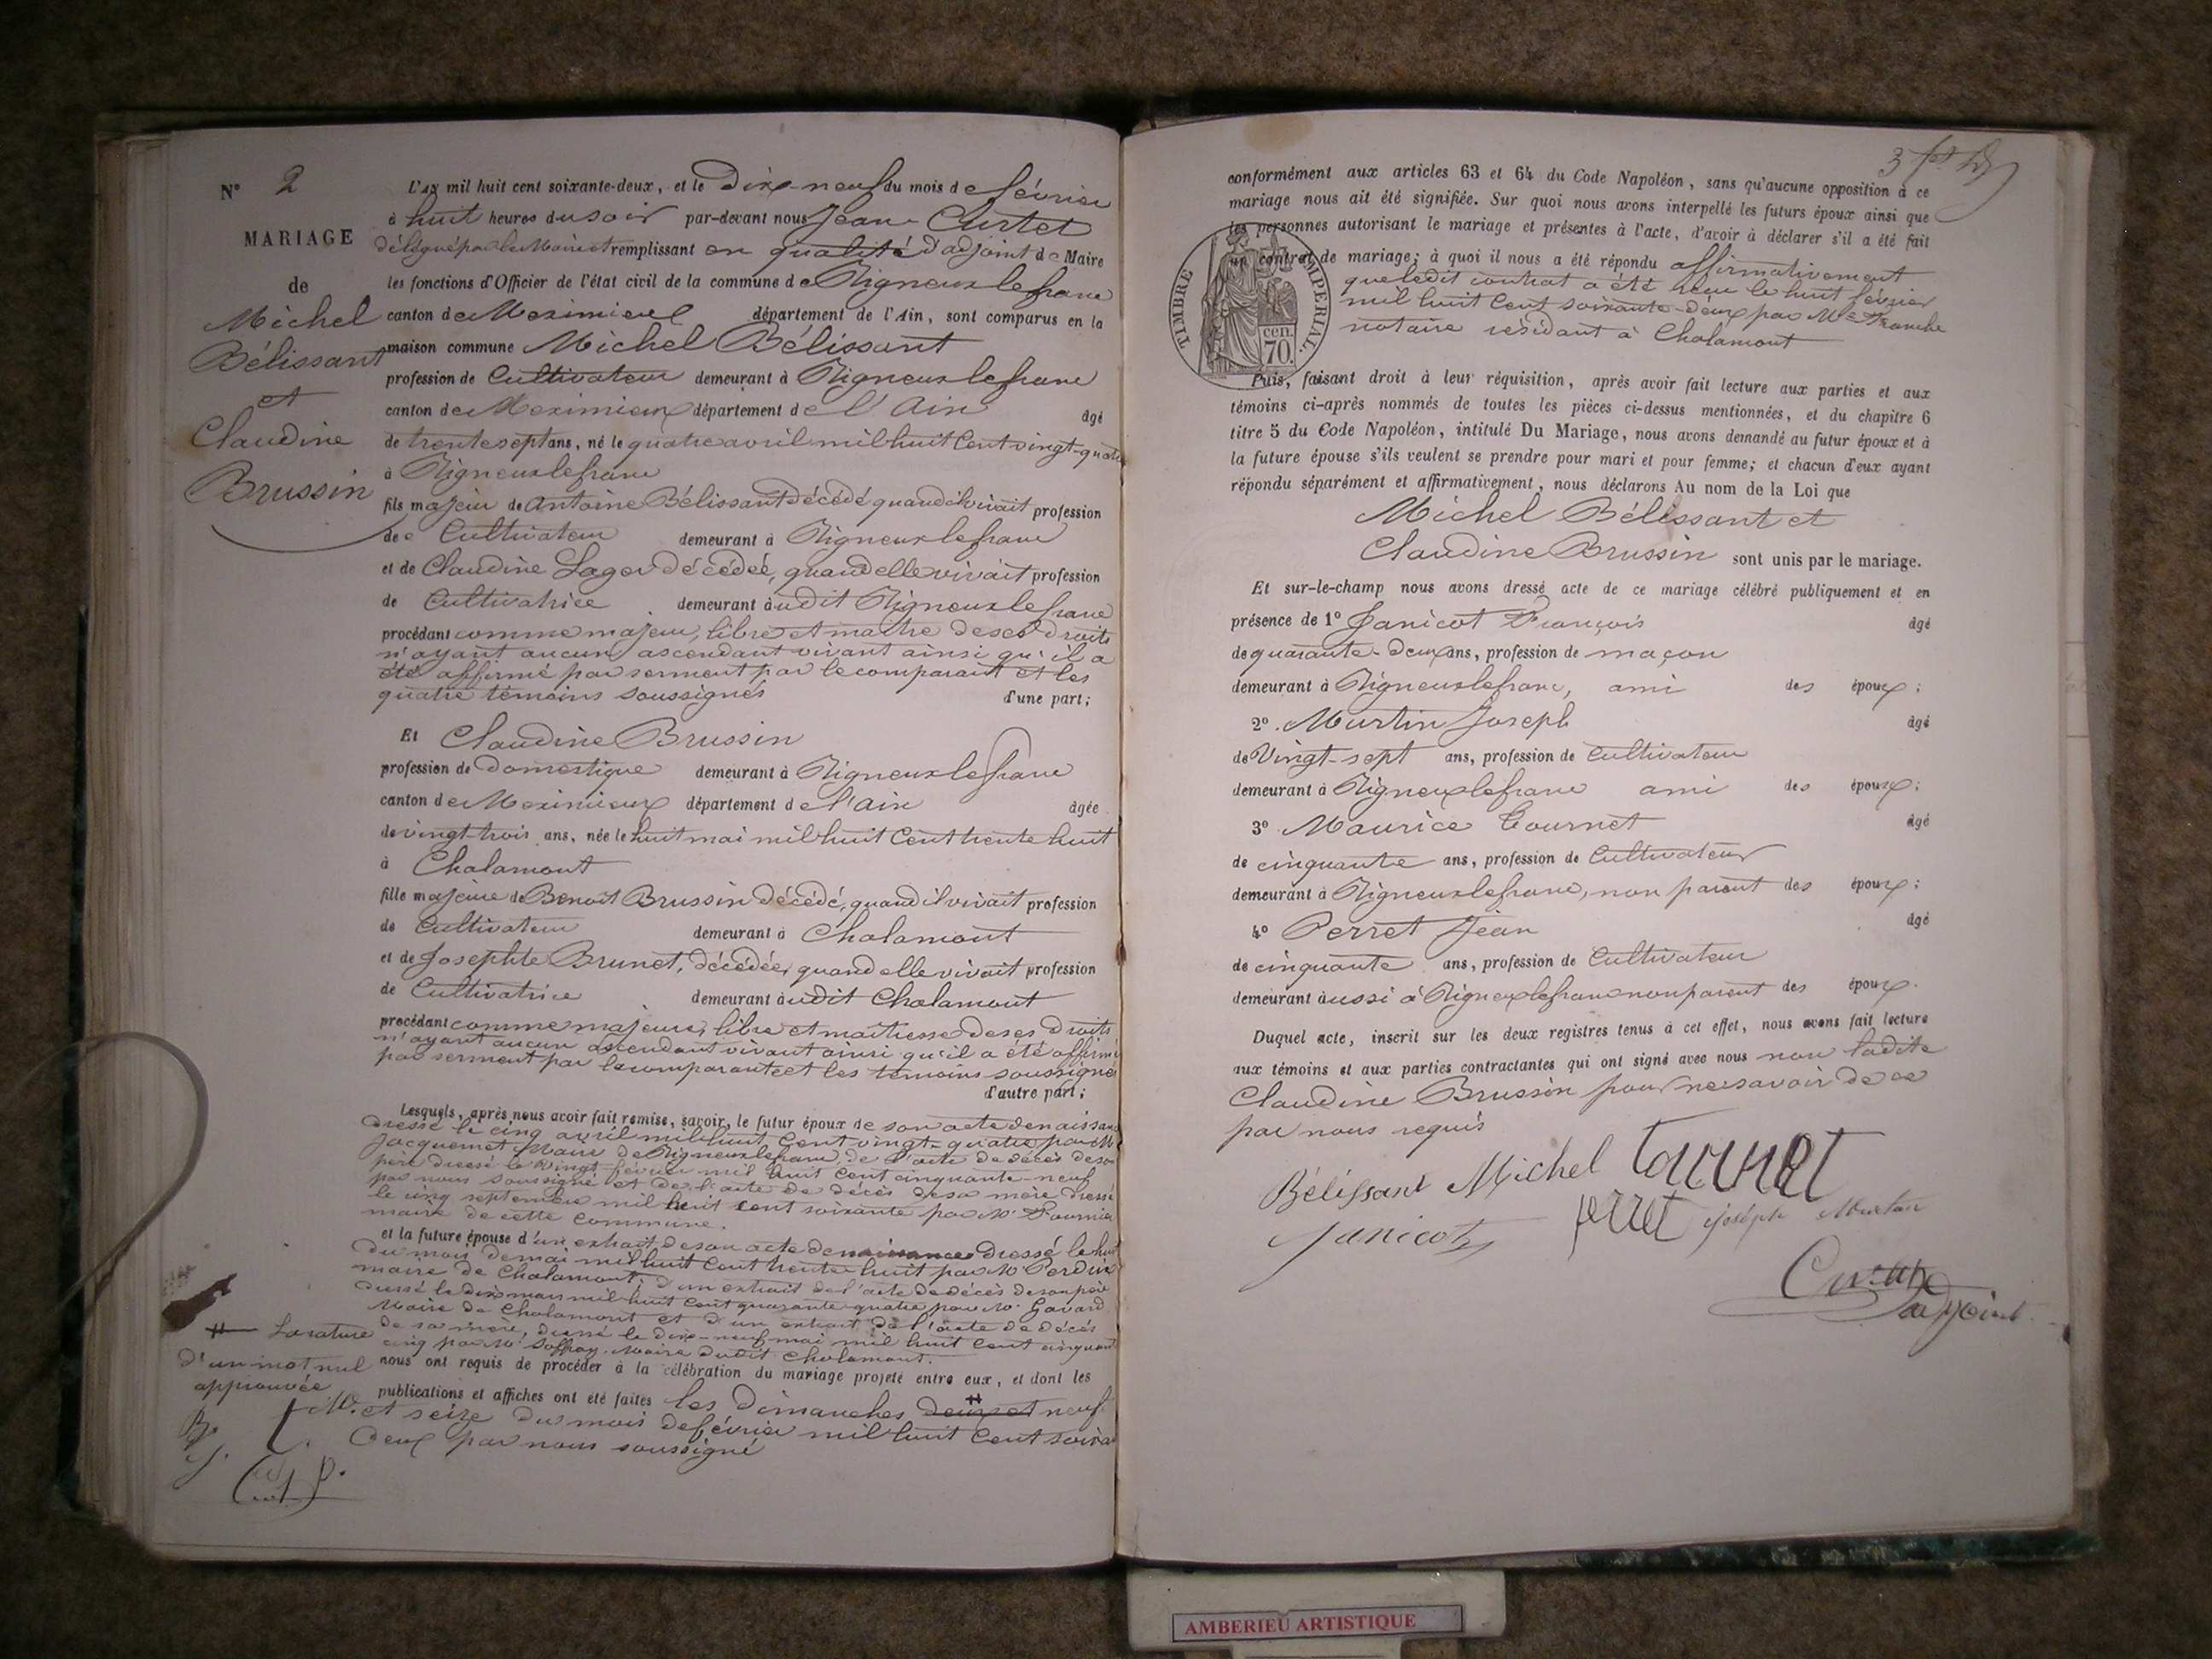 N° 2
MARIAGE
de
Michel
Bélissant
et
Claudine
Brussin
L'an mil huit cent soixante-deux, et le Dix-neuf du mois de février
à huit heures du soir par-devant nous Jean Curtet
délégué par le Maire et remplissant en qualité d'adjoint de Maire
les fonctions d'Officier de l'état civil de la commune de Rigneux lefranc
canton de Meximieux département de l'Ain, sont comparus en la
maison commune Michel Bélissant
profession de Cultivateur demeurant à Rigneux lefranc
canton de Meximieux département de l'Ain âgé
de trente sept ans, né le quatre avril mil huit Cent vingt-quatre
à Rigneux lefranc
fils majeur de Antoine Bélissant décédé quand il vivait profession
de Cultivateur demeurant à Rigneux lefranc
et de Claudine Lager décédée, quand elle vivait profession
de Cultivatrice demeurant audit Rigneux lefranc
procédant comme majeur, libre et maître de ses droits
n'ayant aucun ascendant vivant ainsi qu'il a
été affirmé par serment par le comparant et les
quatre témoins soussignés d'une part;
Et Claudine Brussin
profession de domestique demeurant à Rigneux lefranc
canton de Meximieux département de l'Ain âgée
de vingt-trois ans, née le huit mai mil huit Cent trente huit
à Chalamont
fille majeure de Benoit Brussin décédé, quand il vivait profession
de Cultivateur demeurant à Chalamont
et de Josephte Brunet, décédée, quand elle vivait profession
de Cultivatrice demeurant audit Chalamont
procédant comme majeure, libre et maîtresse de ses droits
n'ayant aucun ascendant vivant ainsi qu'il a été affirmé
par serment par la comparante et les témoins soussignés
d'autre part;
Lesquels, après nous avoir fait remise, savoir, le futur époux de son acte de naissance
dressé le cinq avril mil huit Cent vingt-quatre par Mr
Jacquemet Maire de Rigneux lefranc, de l'acte de décès de son
père dressé le vingt février mil huit Cent cinquante-neuf
par nous soussigné et de l'acte de décès de sa mère dressé
le cinq septembre mil huit cent soixante par Mr Fournier
maire de cette commune.
et la future épouse d'un extrait de son acte de naissance dressé le huit
du mois de mai mil huit Cent trente huit par Mr Perdrix
maire de Chalamont, d'un extrait de l'acte de décès de son père
dressé le dix mars mil huit Cent quarante-quatre par Mr Gavard
Maire de Chalamont et d'un extrait de l'acte de décès
de sa mère, dressé le dix-neuf mai mil huit Cent cinquante
cinq par Mr Maire dudit Chalamont.
nous ont requis de procéder à la célébration du mariage projeté entre eux, et dont les
publications et affiches ont été faites les Dimanches deux et neuf
et seize du mois de février mil huit Cent soixante
deux par nous soussigné
La rature
d'un mot nul
approuvée
B. M.
J. T.
P.
3
conformément aux articles 63 et 64 du Code Napoléon, sans qu'aucune opposition à ce
mariage nous ait été signifiée. Sur quoi nous avons interpellé les futurs époux ainsi que
les personnes autorisant le mariage et présentes à l'acte, d'avoir à déclarer s'il a été fait
un contrat de mariage; à quoi il nous a été répondu affirmativement
que ledit contrat a été reçu le huit février
mil huit Cent soixante-deux par Me
notaire résidant à Chalamont
TIMBRE IMPERIAL.
cen.
70.
Puis, faisant droit à leur réquisition, après avoir fait lecture aux parties et aux
témoins ci-après nommés de toutes les pièces ci-dessus mentionnées, et du chapitre 6
titre 5 du Code Napoléon, intitulé Du Mariage, nous avons demandé au futur époux et à
la future épouse s'ils veulent se prendre pour mari et pour femme; et chacun d'eux ayant
répondu séparément et affirmativement, nous déclarons Au nom de la Loi que
Michel Bélissant et
Claudine Brussin sont unis par le mariage.
Et sur-le-champ nous avons dressé acte de ce mariage célébré publiquement et en
présence de 1° Janicot François âgé
de quarante-deux ans, profession de maçon
demeurant à Rigneux lefranc, ami des époux;
2° Murtin Joseph âgé
de Vingt-sept ans, profession de Cultivateur
demeurant à Rigneux lefranc ami des époux;
3° Maurice Tournet âgé
de cinquante ans, profession de Cultivateur
demeurant à Rigneux lefranc, non parent des époux;
4° Perret Jean âgé
de cinquante ans, profession de Cultivateur
demeurant aussi à Rigneux lefranc non parent des époux.
Duquel acte, inscrit sur les deux registres tenus à cet effet, nous avons fait lecture
aux témoins et aux parties contractantes qui ont signé avec nous non ladite
Claudine Brussin pour ne savoir de ce
par nous requis
Bélissant Michel Tournet
Janicot Perret Joseph Murtin
Curtet
adjoint
AMBERIEU ARTISTIQUE